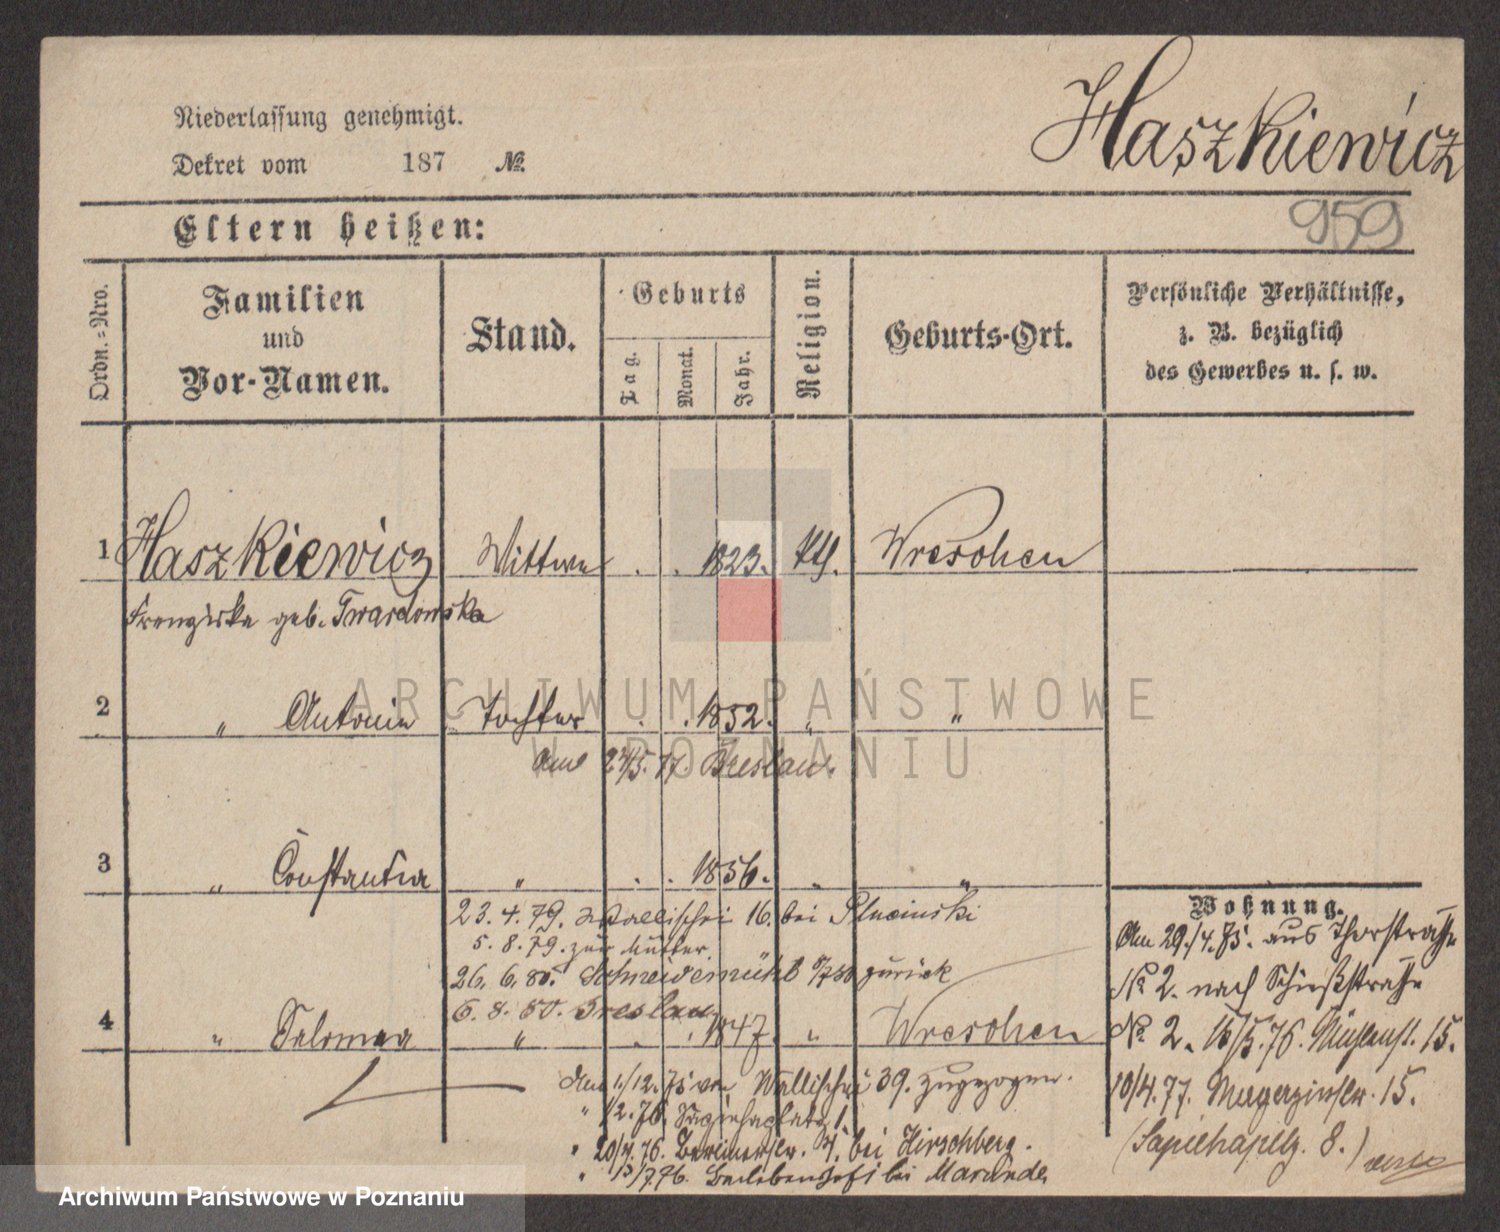 Niederlassung genehmigt.
Dekret vom 187 №.
Haszkiewicz
959
Eltern heißen:
Ordn.=Nro.
Familien
und
Vor-Namen.
Stand.
Geburts
Tag.
Monat.
Jahr.
Religion.
Geburts-Ort.
Persönliche Verhältnisse,
z. B. bezüglich
des Gewerbes u. s. w.
1 Haszkiewicz Wittwe . . 1823. Kth. Wreschen
Franziska geb. Twardowska
2 " Antonie Tochter . . 1852. " "
ARCHIWUM PAŃSTWOWE
W POZNANIU
24/5. 77. Breslau.
3 " Constantia " . . 1856. " "
23. 4. 79. Wallischei 16. bei Plucinski
5. 8. 79. zur Mutter.
26. 6. 80. Schneidemühl zurück
6. 8. 80. Breslau
4 " Salomea " . . 1847. " Wreschen
Am 1/12. 75 von Wallischei 39. zugezogen.
" 1/2. 76. Sapiehaplatz 1.
" 20/4. 76. bei Hirschberg.
" bei
Wohnung.
Am 29./4. 75. aus Thorstraße
No 2. nach Schießstraße
No 2. 16/5. 76. Mühlenst. 15.
10/4. 77. Magazinstr. 15.
(Sapiehapltz. 8.)
Archiwum Państwowe w Poznaniu